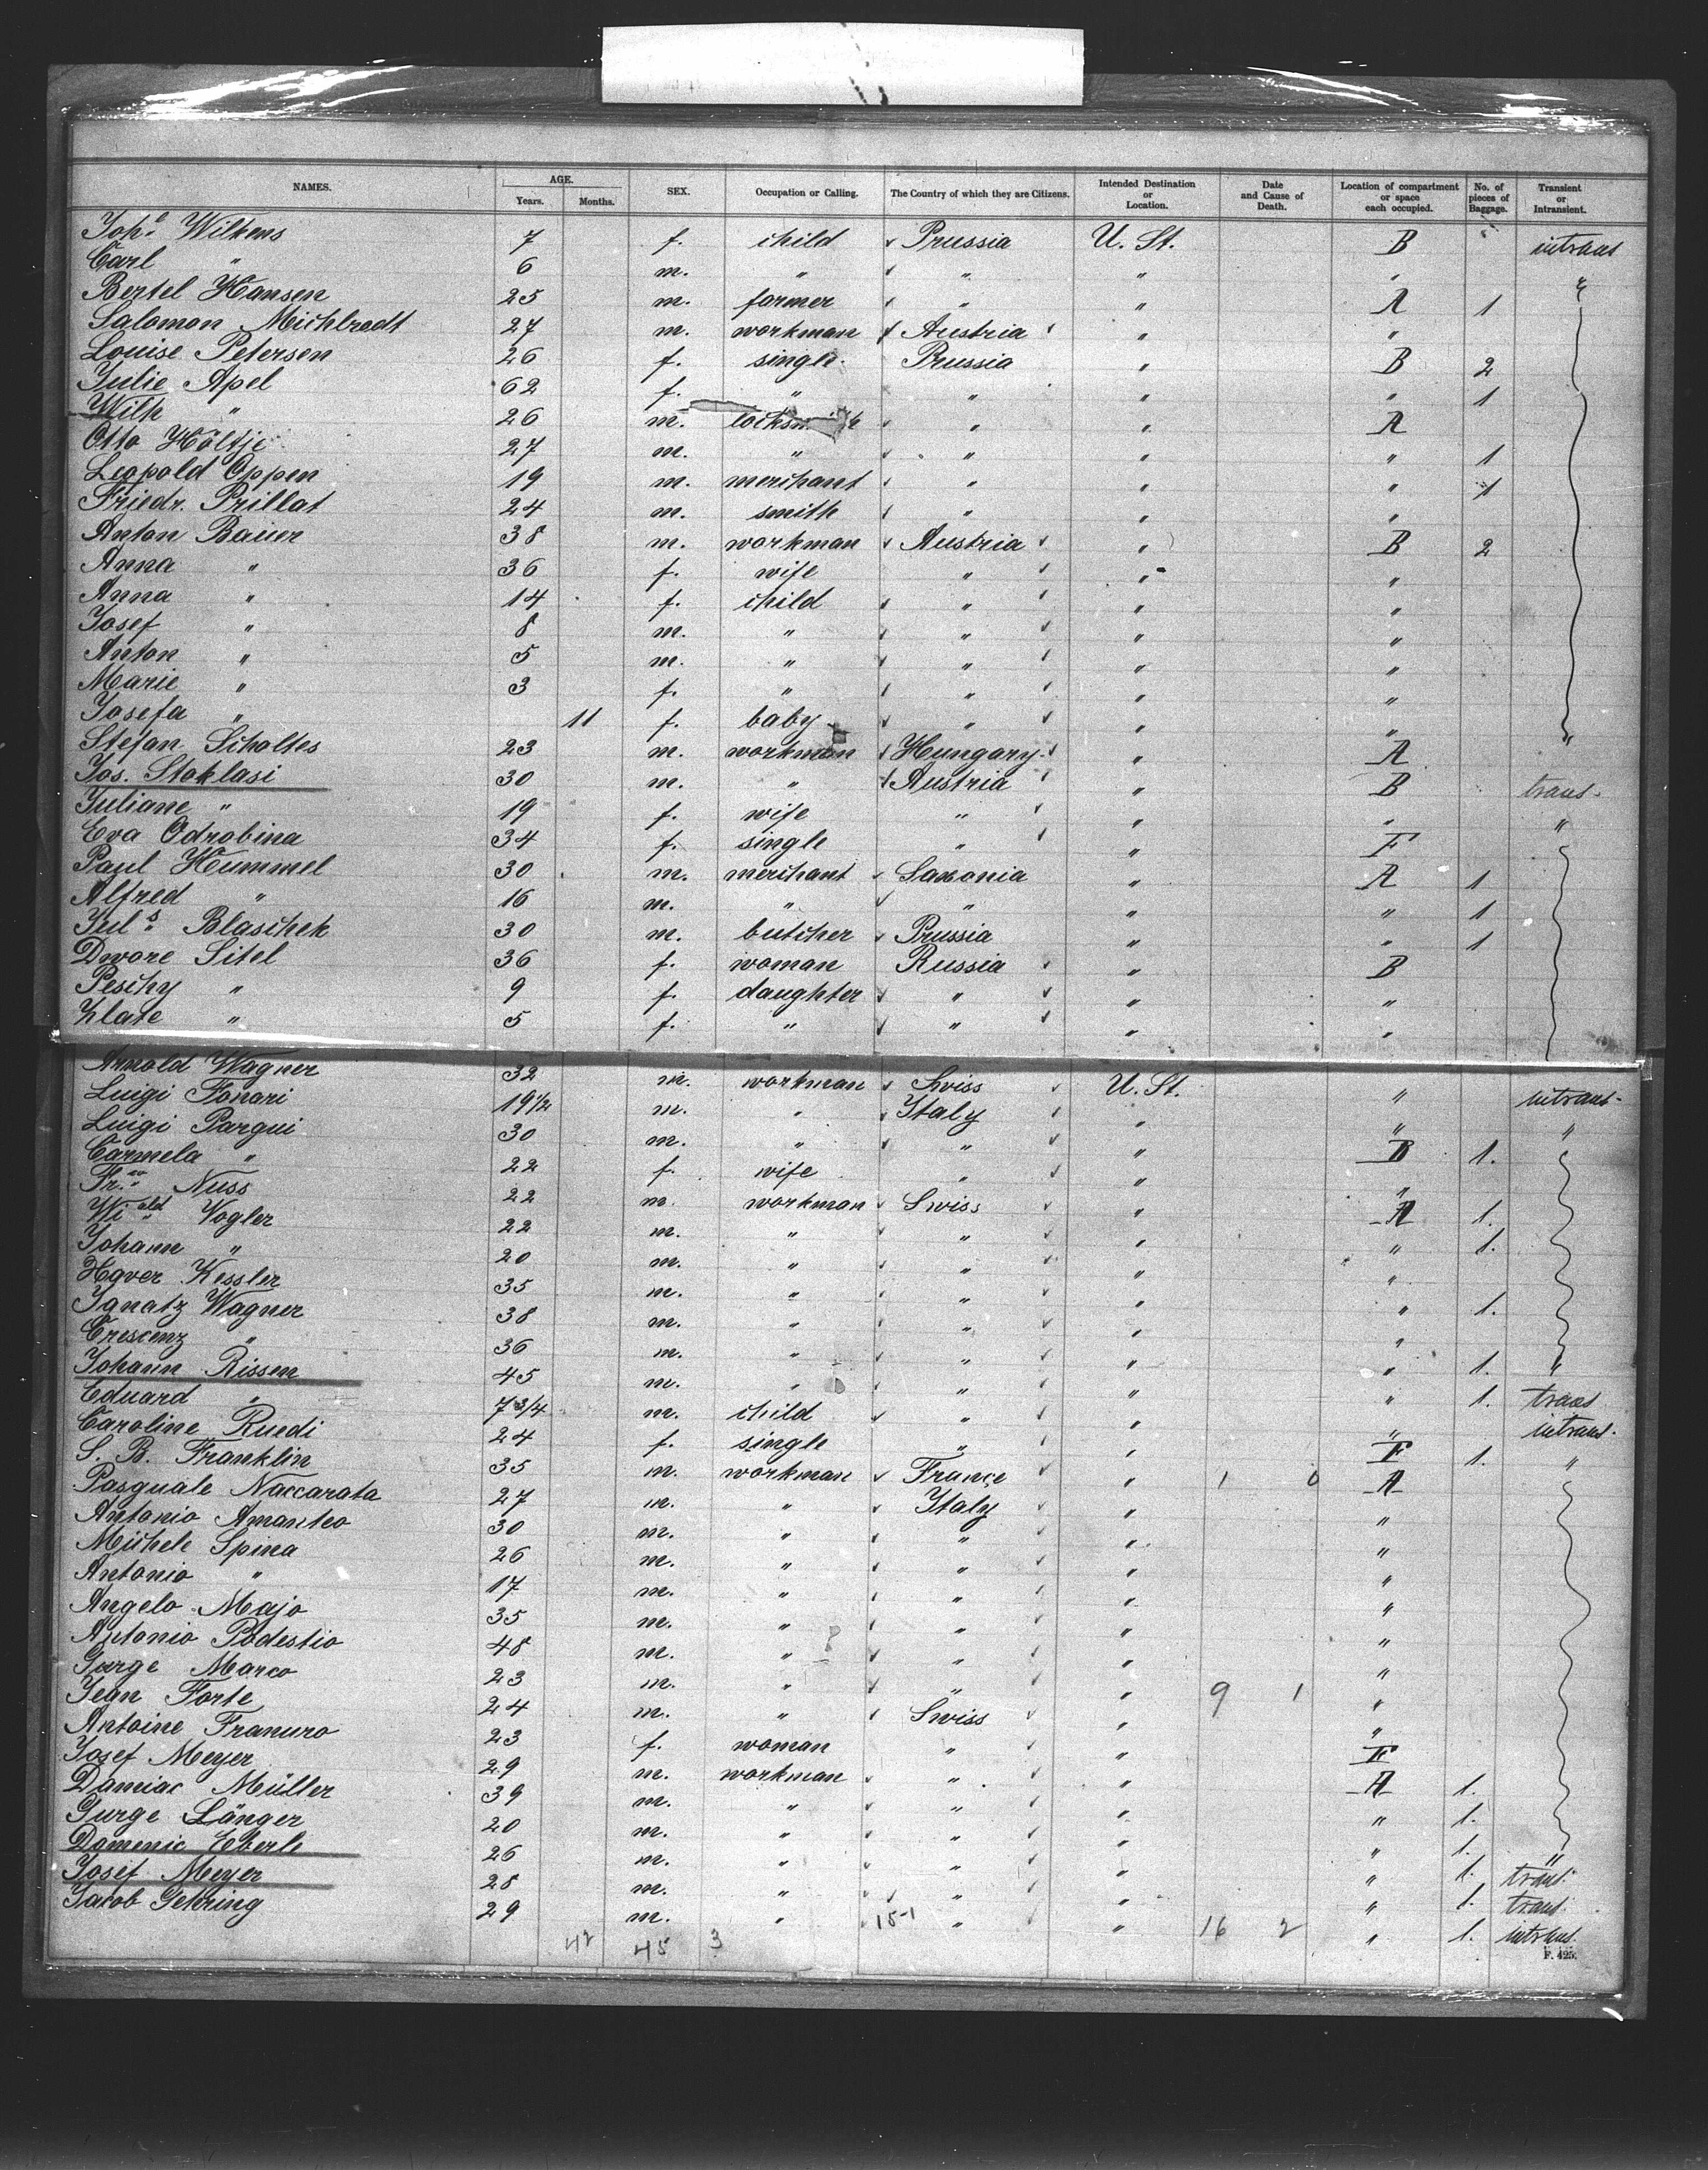 NAMES. AGE. Years. Months. SEX. Occupation or Calling. The Country of which they are Citizens. Intended Destination or Location. Date and Cause of Death. Location of compartment or space each occupied. No. of pieces of Baggage. Transient or Intransient.
Joh.e Wilkens 7 f. child Prussia U. St. B intrans
Carl " 6 m. " " " "
Bertel Hansen 25 m. farmer " " A 1
Salomon Michlradt 27 m. workman Austria " "
Louise Petersen 26 f. single Prussia " B 2
Julie Apel 62 f. " " " " 1
Wilh " 26 m. locksmith " " A
Otto Höltje 27 m. " " " " 1
Leopold Oppen 19 m. merchant " " " 1
Friedr. Prillat 24 m. smith " " "
Anton Bauer 38 m. workman Austria " B 2
Anna " 36 f. wife " " "
Anna " 14 f. child " " "
Josef " 8 m. " " " "
Anton " 5 m. " " " "
Marie " 3 f. " " " "
Josefa " 11 f. baby " " "
Stefan Scholtes 23 m. workman Hungary " A "
Jos. Stoklasi 30 m. " Austria " B trans.
Juliane " 19 f. wife " " " "
Eva Odrobina 34 f. single " " F
Paul Hummel 30 m. merchant Saxonia " A 1
Alfred " 16 m. " " " " 1
Jul.s Blaschek 30 m. butcher Prussia " " 1
Dwore Sitel 36 f. woman Russia " B
Peschy " 9 f. daughter " " "
Zlate " 5 f. " " " "
Arnold Wagner 32 m. workman Swiss U. St. " intrans.
Luigi Fonari 19 1/2 m. " Italy " " "
Luigi Pargui 30 m. " " " B 1.
Carmela " 22 f. wife " " "
Fr. Nuss 22 m. workman Swiss " A 1.
Wi.ald Vogler 22 m. " " " " 1.
Johann " 20 m. " " " "
Xaver Kessler 35 m. " " " " 1.
Ignatz Wagner 38 m. " " " "
Crescenz " 36 m. " " " " 1. "
Johann Rissen 45 m. " " " " 1. trans
Eduard " 7 3/4 m. child " " " intrans.
Caroline Ruedi 24 f. single " " F 1. "
S. B. Franklin 35 m. workman France " 1 0 A
Pasquale Naccarata 27 m. " Italy " "
Antonio Amanteo 30 m. " " " "
Michele Spina 26 m. " " " "
Antonio " 17 m. " " " "
Angelo Majo 35 m. " " " "
Antonio Podestio 48 m. " " " "
Jurge Marco 23 m. " " " 9 1 "
Jean Forte 24 m. " Swiss " "
Antoine Franuro 23 f. woman " " F
Josef Meyer 29 m. workman " " A 1.
Damiac Müller 39 m. " " " " 1.
Jurge Länger 20 m. " " " " 1. "
Domenic Eberle 26 m. " " " " 1. trans.
Josef Meyer 28 m. " " " " 1. trans.
Jacob Gehring 29 m. " 15-1 " " 16 2 " 1. intrans.
42 45 3
F. 425.